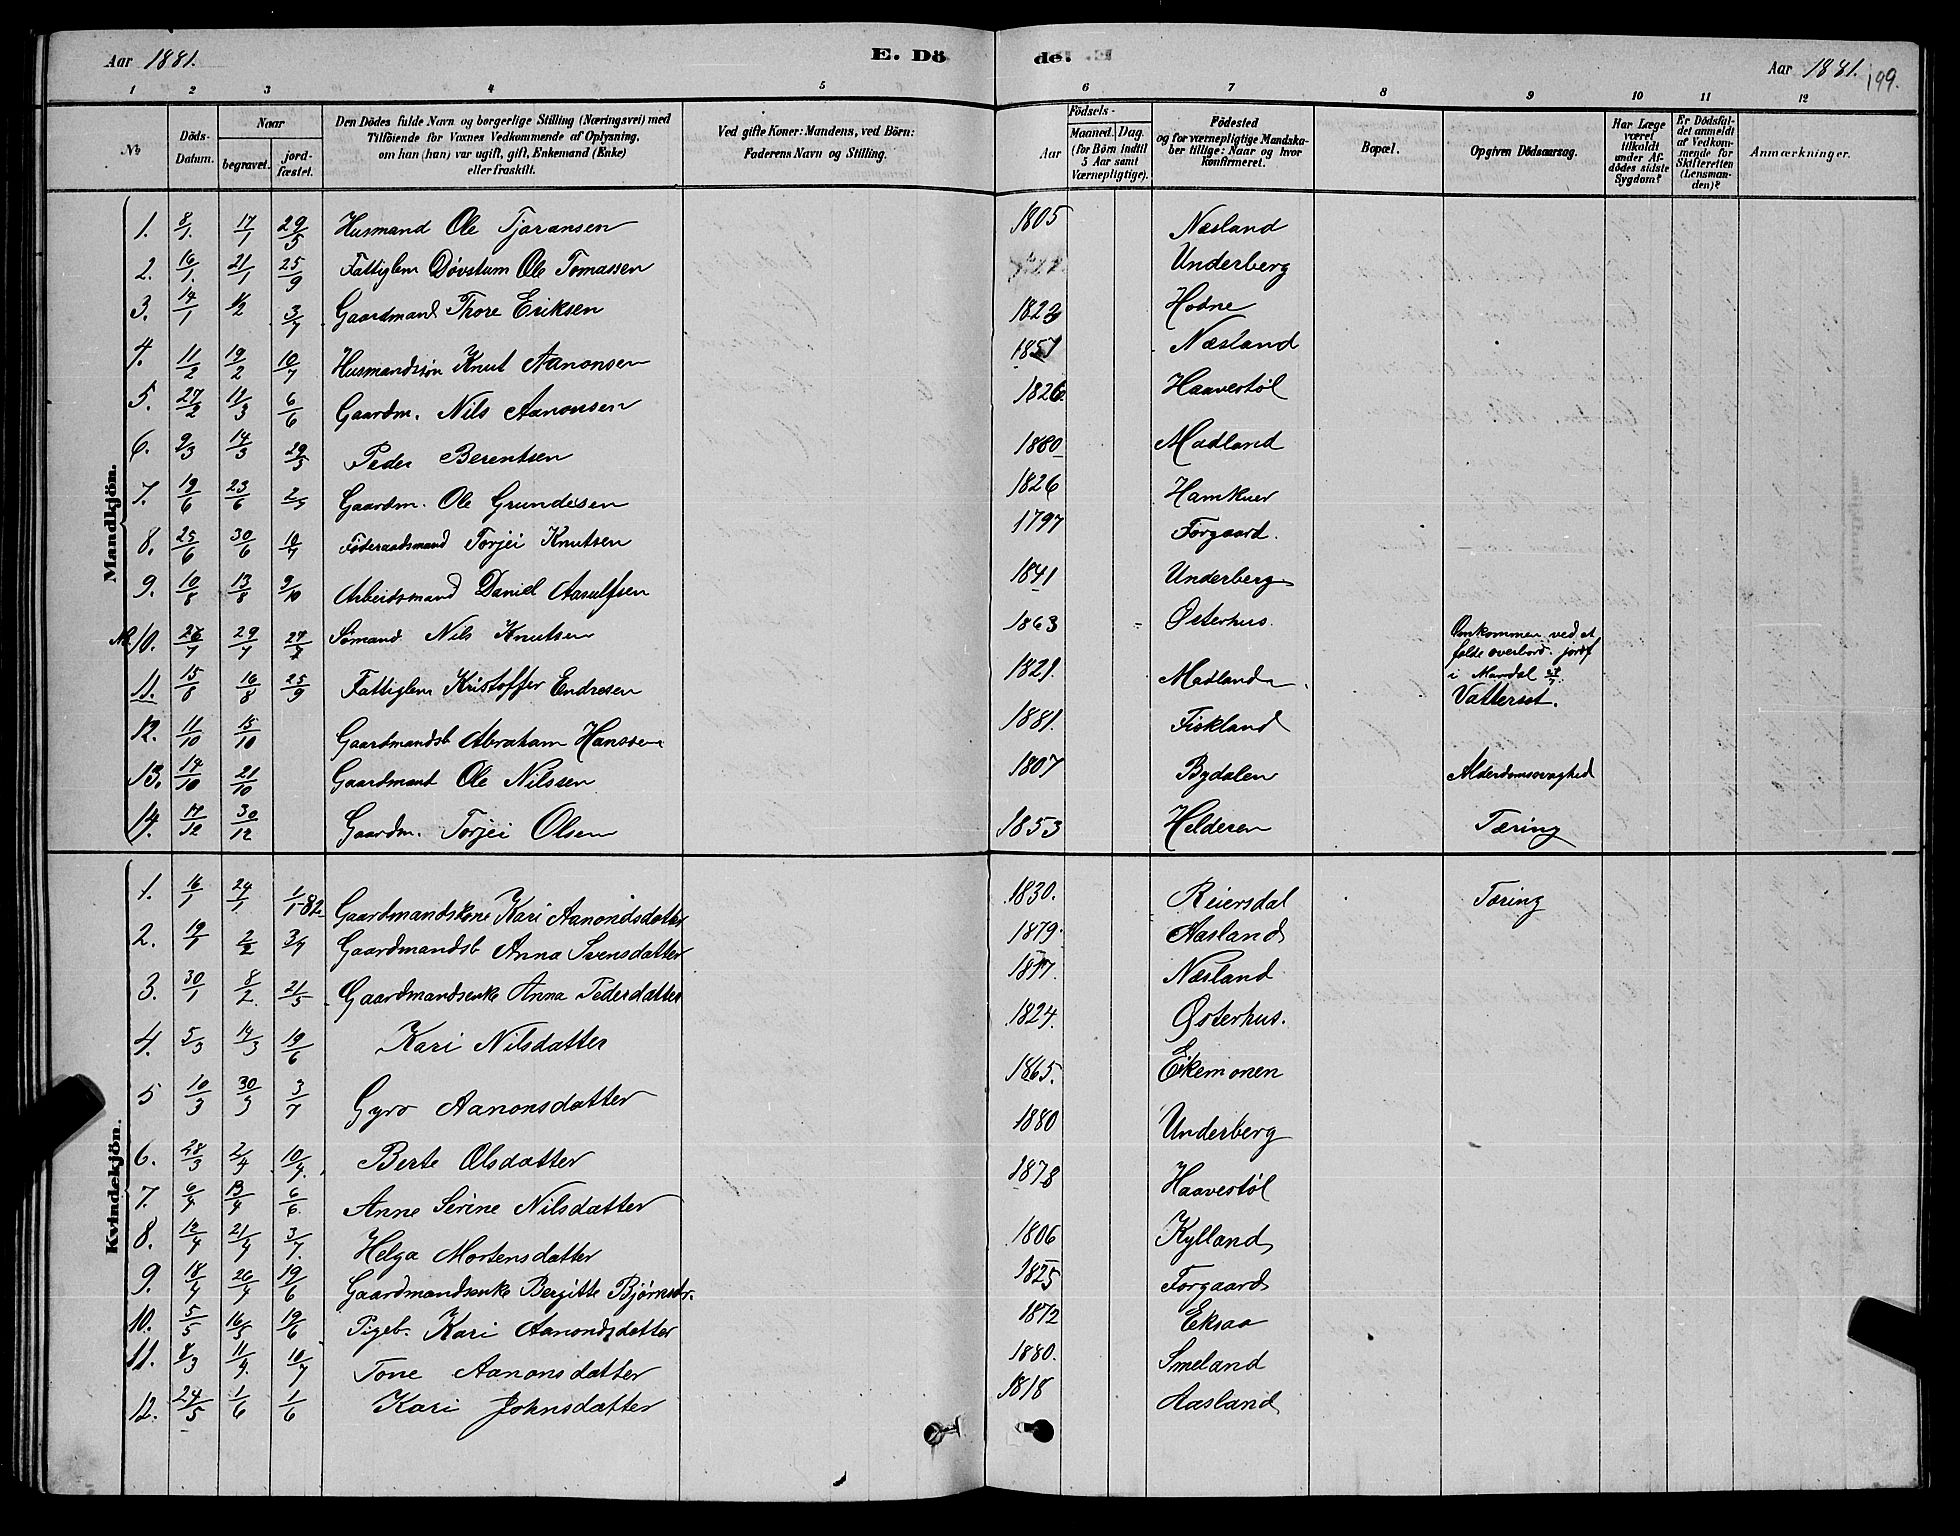 Aar 1881. E. Dö de. Aar 1881. 199.
1 2 3 4 5 6 7 8 9 10 11 12
No
Döds-Datum.
Naar
begravet. jordfæstet.
Den Dödes fulde Navn og borgerlige Stilling (Næringsvei) med Tilföiende for Voxnes Vedkommende af Oplysning, om han (hun) var ugift, gift, Enkemand (Enke) eller fraskilt.
Ved gifte Koner: Mandens, ved Börn: Faderens Navn og Stilling.
Födsels-
Aar Maaned. Dag.
(for Börn indtil 5 Aar samt Værnepligtige).
Födested og for værnepligtige Mandskaber tillige: Naar og hvor konfirmeret.
Bopæl.
Opgiven Dödsaarsag.
Har Læge været tilkaldt under Afdödes sidste Sygdom?
Er Dödsfaldet anmeldt af Vedkommende for Skifteretten (Lensmanden)?
Anmærkninger.
Mandkjön.
1. 8/1. 17/1 29/5 Husmand Ole Tjøransen 1805 Næsland
2. 16/1. 21/1 25/9 Fattiglem Døvstum Ole Tomassen Underberg
3. 14/1 1/2 3/7 Gaardmand Thore Eriksen 1823 Hodne
4. 11/2 19/2 10/7 Husmandssøn Knut Aanonsen 1857 Næsland
5. 27/2 11/3 6/6 Gaardm. Nils Aanonsen 1826 Haavestøl
6. 9/3 14/3 29/5 Peder Berentsen 1880 Madland
7. 19/6 23/6 Gaardm. Ole Grundesen 1826 Hamkuer
8. 25/6 30/6 10/7 Føderaadsmand Torjei Knutsen 1797 Forgaard.
9. 10/8 13/8 9/10 Arbeidsmand Daniel Aasulfsen 1841 Underberg
10. 26/7 29/7 27/7 Sømand Nils Knutsen 1863 Østerhus. Omkommen ved at
falde overbord. jordf
i Mandal
11. 15/8 16/8 25/9 Fattiglem Kristoffer Endresen 1821. Madland Vattersot.
12. 11/10 15/10 Gaardmandsb Abraham Hanssen 1881. Fiskland
13. 14/10 21/10 Gaardmand Ole Nilssen 1807 Bydalen Alderdomssvaghed
14. 17/12 30/12 Gaardm. Torjei Olsen 1853 Helderen Tæring
Kvindekjön.
1. 16/1 24/1. 1/1-82. Gaardmandskone Kari Aanondsdatter 1830. Reiersdal Tæring
2. 19/1 2/2 3/7 Gaardmandsb Anna Svensdatter 1879. Aasland
3. 30/1 8/2. 21/5 Gaardmandsenke Anna Pedersdatter 1817. Næsland
4. 5/3 14/3 19/6 Kari Nilsdatter 1824. Østerhus.
5 10/3 30/3 3/7 Gyro Aanonsdatter 1865. Eikemonen
6. 28/3 2/4 10/4. Berte Olsdatter 1880 Underberg
7. 6/4 13/4 6/6. Anne Serine Nilsdatter 1878 Haavestøl
8. 12/4 21/4 3/7. Helga Mortensdatter 1806 Kylland
9. 18/4 26/4 19/6 Gaardmandsenke Bergitte Bjørnsdr. 1825 Forgaard
10. 5/5 16/5 19/6 Pigeb. Kari Aanondsdatter 1872 Eksaa
11. 8/3 11/4. 10/7 Tone Aanonsdatter 1880. Smeland
12. 24/5 1/6 1/6 Kari Johnsdatter 1818 Aasland